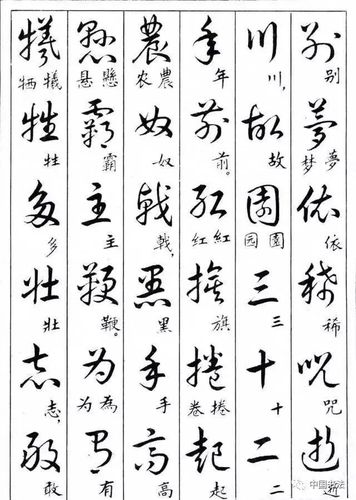 别夢依稀咒逝
别 梦夢 依 稀 咒 逝
川故園三十二
川, 故 园園 三 十 二
年前紅旗捲起
年 前。 红紅 旗 卷捲 起
農奴戟黑手高
农農 奴 戟, 黑 手 高
懸霸主鞭为有
悬懸 霸 主 鞭。 为為 有
犧牲多壮志敢
牺犧 牲 多 壮 志, 敢
中国书法